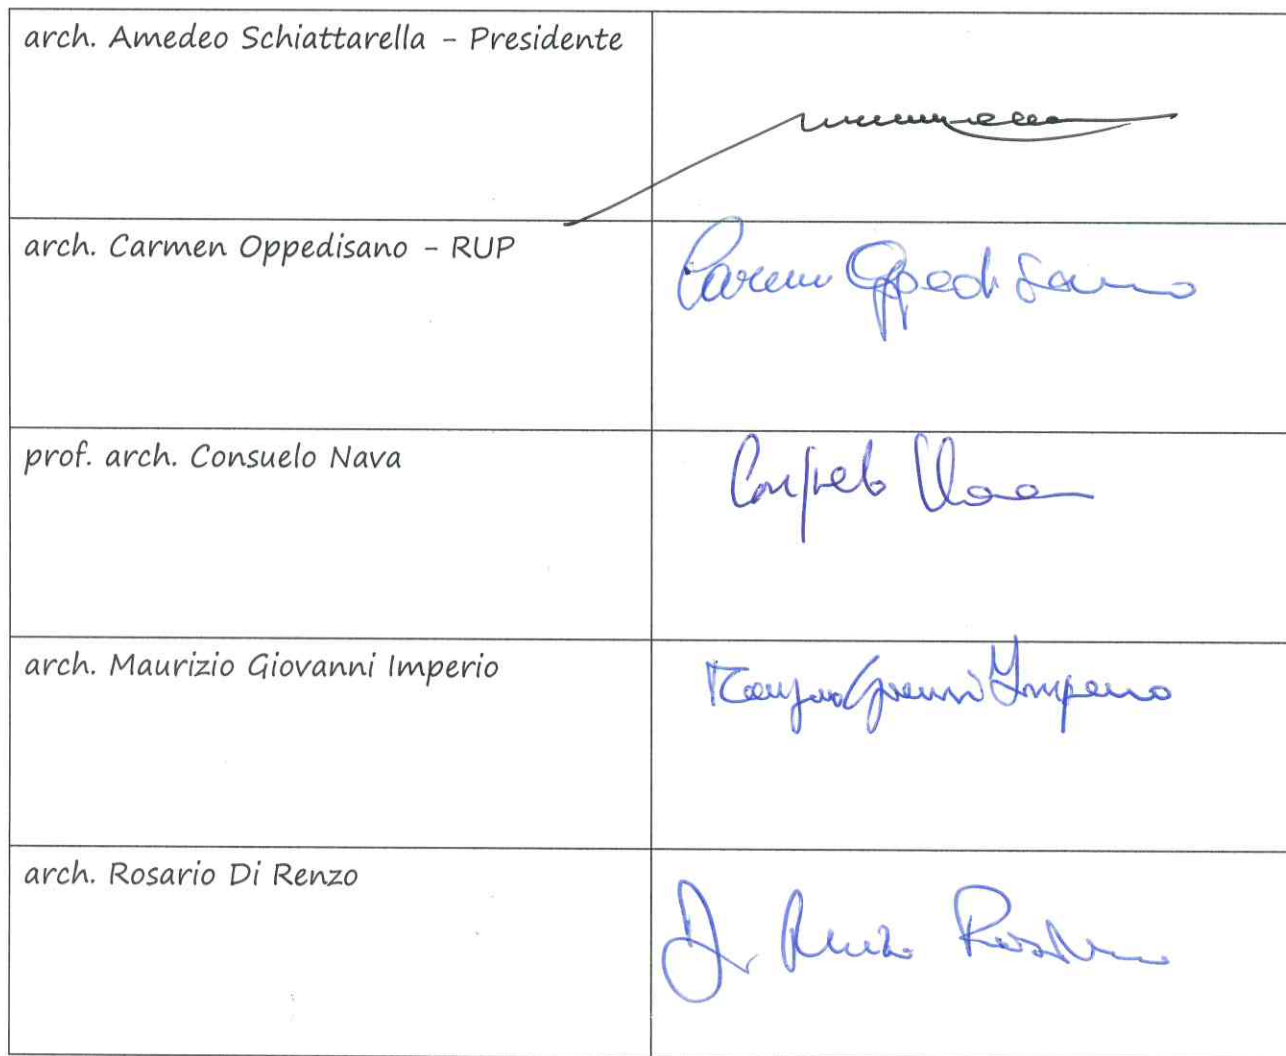 arch. Amedeo Schiattarella - Presidente
arch. Carmen Oppedisano - RUP
Carmen Oppedisano
prof. arch. Consuelo Nava
Consuelo Nava
arch. Maurizio Giovanni Imperio
Maurizio Giovanni Imperio
arch. Rosario Di Renzo
Di Renzo Rosario